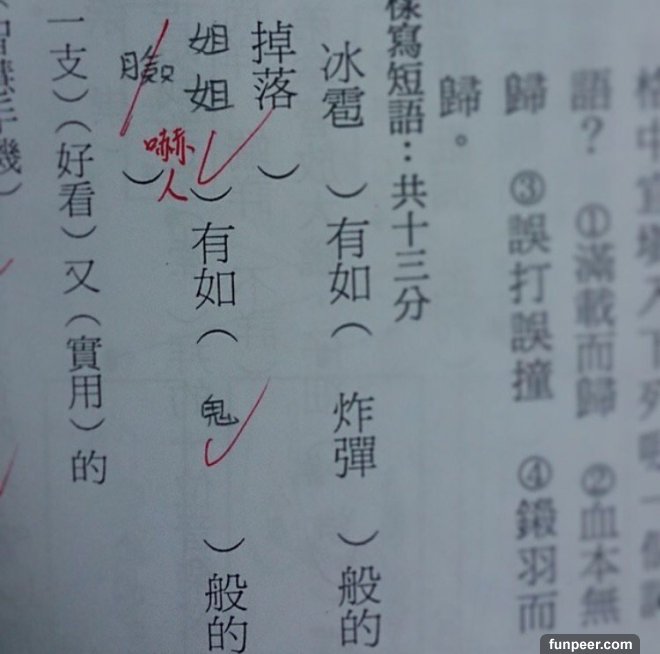 語？ ①滿載而歸 ②血本無
歸 ③誤打誤撞 ④鎩羽而
歸。
樣寫短語：共十三分
冰雹 ）有如（ 炸彈 ）般的
掉落 ）
姐姐 ）有如（ 鬼 ）般的
臉 ）
嚇人
一支）（好看）又（實用）的
慧手機）
funpeer.com